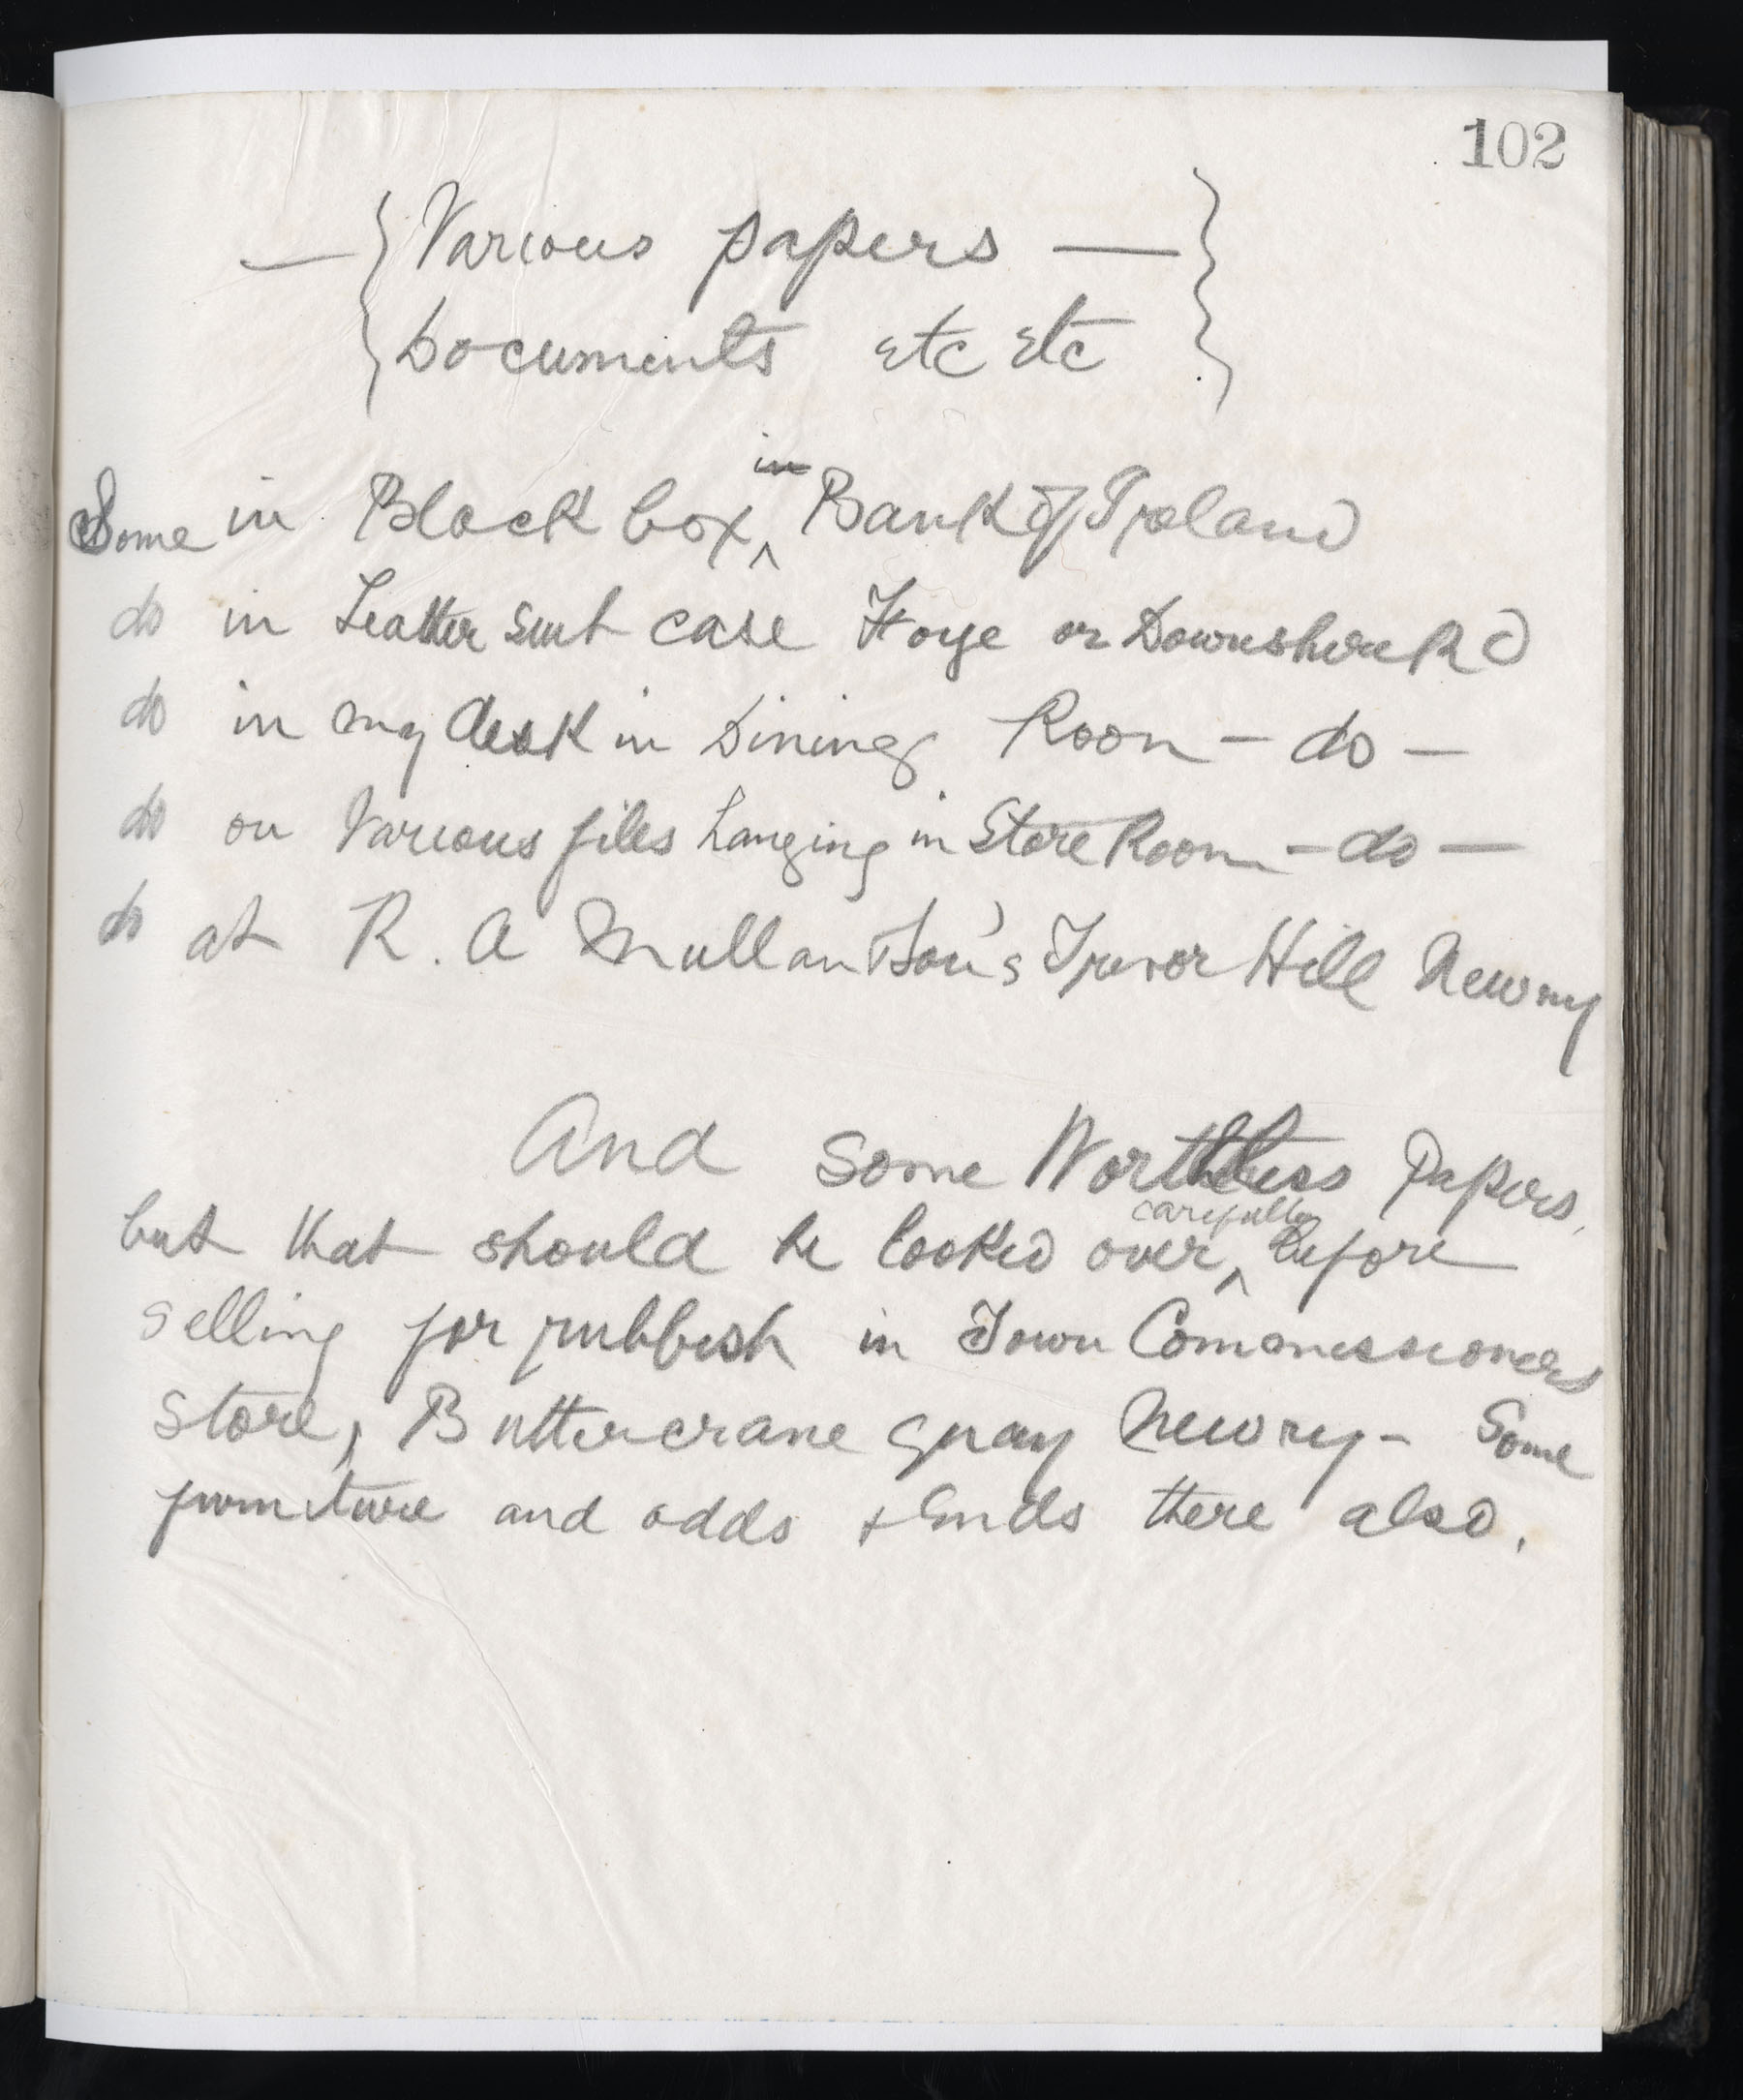 102
— { Various papers — }
{ Documents etc etc }
in
Some in Black box ^ Bank of Ireland
do in Leather suit case or Downshire Rd
do in my desk in Dining Room — do —
do on Various files hanging in Store Room — do —
do at R. A Mullan & Son's Trevor Hill Newry
And some Worthless Papers,
carefully
but that should be looked over ^ before
selling for rubbish in Town Commissioners
Store, Buttercrane quay Newry - Some
furniture and odds & Ends there also.